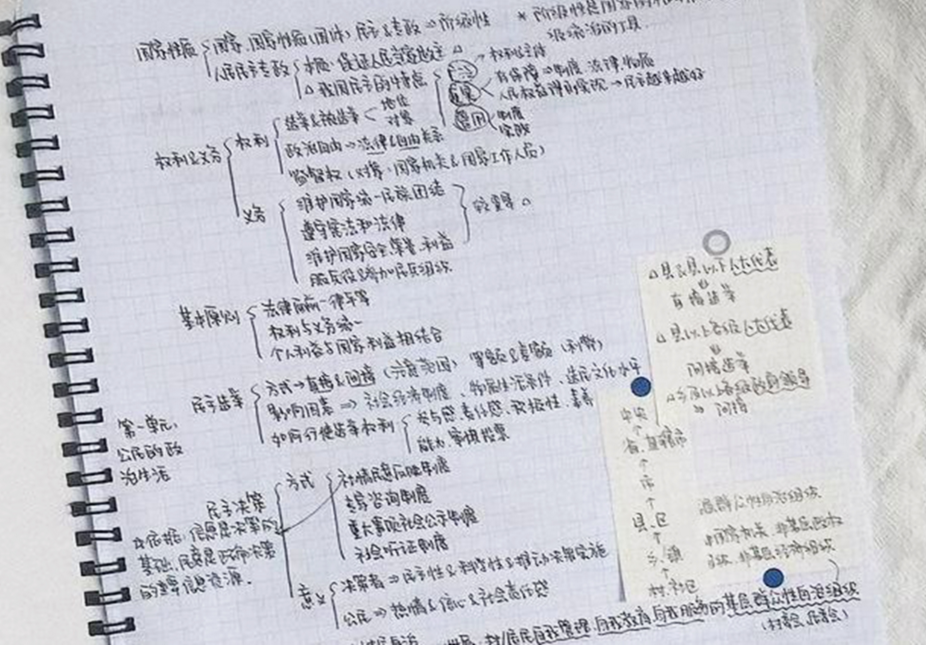 国家性质 国家、国家性质(国体) 民主&专政 ⇒ 阶级性
* 阶级性是国家的
级统治的工具.
人民民主专政 本质:保证人民当家做主 △
△ 我国民主的特点
权利主体
真实 有保障 ⇒ 制度、法律、物质
人民权益得到实现 → 民主越来越好
管用 制度
权利&义务 权利 选举&被选举 地位
政治自由 → 法律&自由关系
监督权 (对象:国家机关&国家工作人员)
义务 维护国家统一民族团结
遵守宪法和法律
维护国家安全、荣誉、利益
服兵役&参加民兵组织
较重要 △
基本原则 法律面前一律平等
权利与义务统一
个人利益与国家利益相结合
△ 县&县以下人大代表
直接选举
△ 县以上各级人大代表
间接选举
间接
民主选举 方式 → 直接&间接 等额&差额
影响因素 ⇒ 社会经济制度、物质生活条件、选民文化水平
如何行使选举权利 参与感、责任感、积极性、素养
能力、审慎投票
第一单元:
公民的政
治生活
中央
↑
省、直辖市
↑
市
↑
县、区
↑
乡、镇
↑
村、社区
基层群众性自治组织
非国家机关、非基层政权
组织、非基层经济组织
民主决策 方式 社情民意反映制度
专家咨询制度
重大事项社会公示制度
社会听证制度
信息是决策的
基础,民意是正确决策
的重要信息资源.
意义 决策者 ⇒ 民主性&科学性&推动决策实施
公民 ⇒ 热情&信心&社会责任感
村/居民自我管理、自我教育、自我服务的基层群众性自治组织
(村委会、居委会)